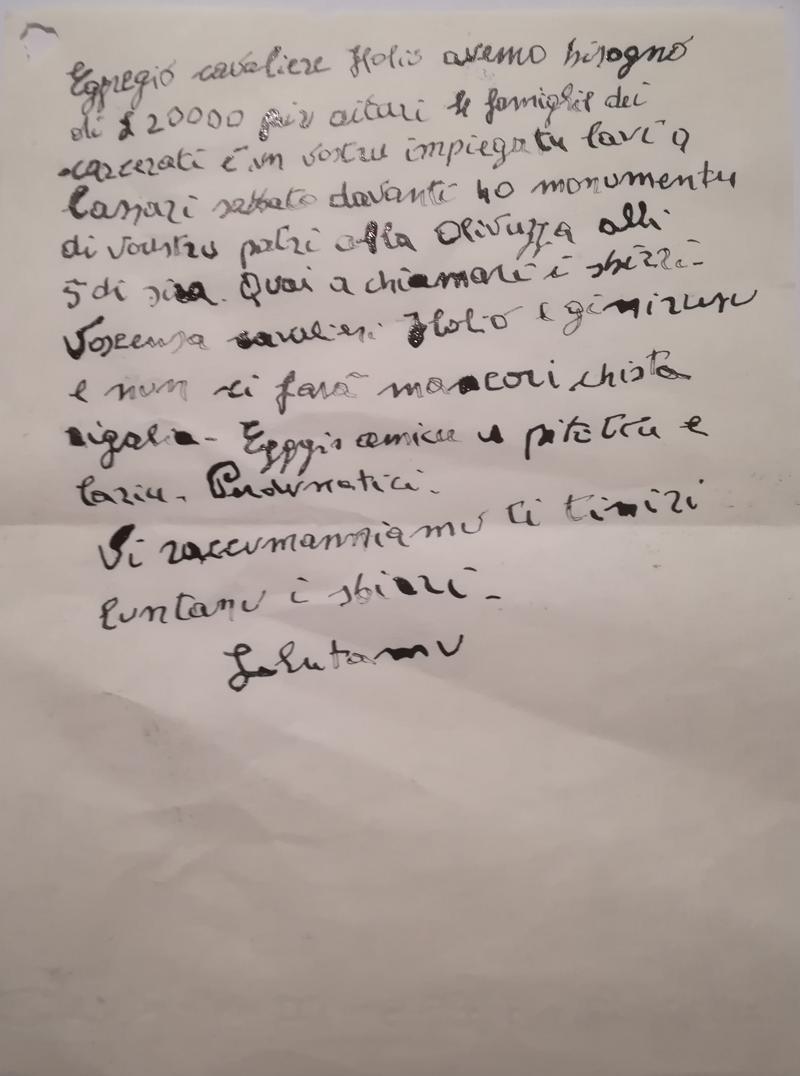 Egpregio cavaliere Florio avemo bisogno
di £ 20000 pir aitari le famiglie dei
carcerati e un vostru impiegatu l'avi a
lassari sabbato davanti lo monumentu
di vostru patri alla Olivuzza alli
5 di sira. Quai a chiamari i sbirri-
Voscenza cavalieri Florio e ginirusu
e nun ci farà mancari chista
rigalia- amicu u e
laziu.
Vi raccumanniamu ti tiniri
luntanu i sbirri-
Salutamu